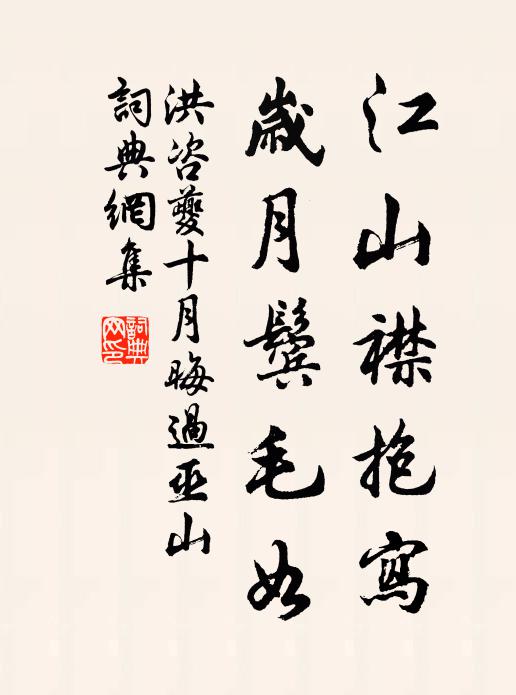 江山襟抱寫
歲月鬢毛
洪咨夔十月晦過巫山
詞典網集
詞典
网印